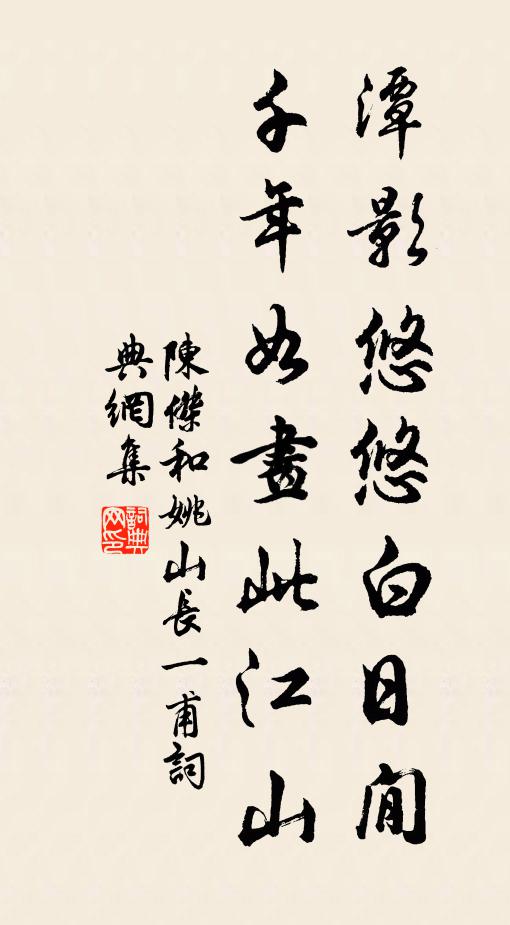 潭影悠悠白日閒
千年如畫此江山
陳傑和姚山長一甫詞
典網集
詞典
网印